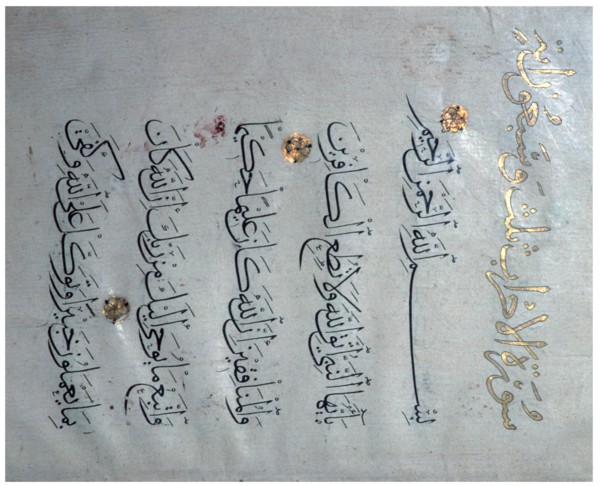 سورة الاحزاب ثلث وسبعون اية
بسم الله الرحمن الرحيم
يأيها النبي اتق الله ولا تطع الكافرين
والمنافقين إن الله كان عليما حكيما
واتبع ما يوحى إليك من ربك إن الله كان
بما يعملون خبيرا وتوكل على الله وكفى